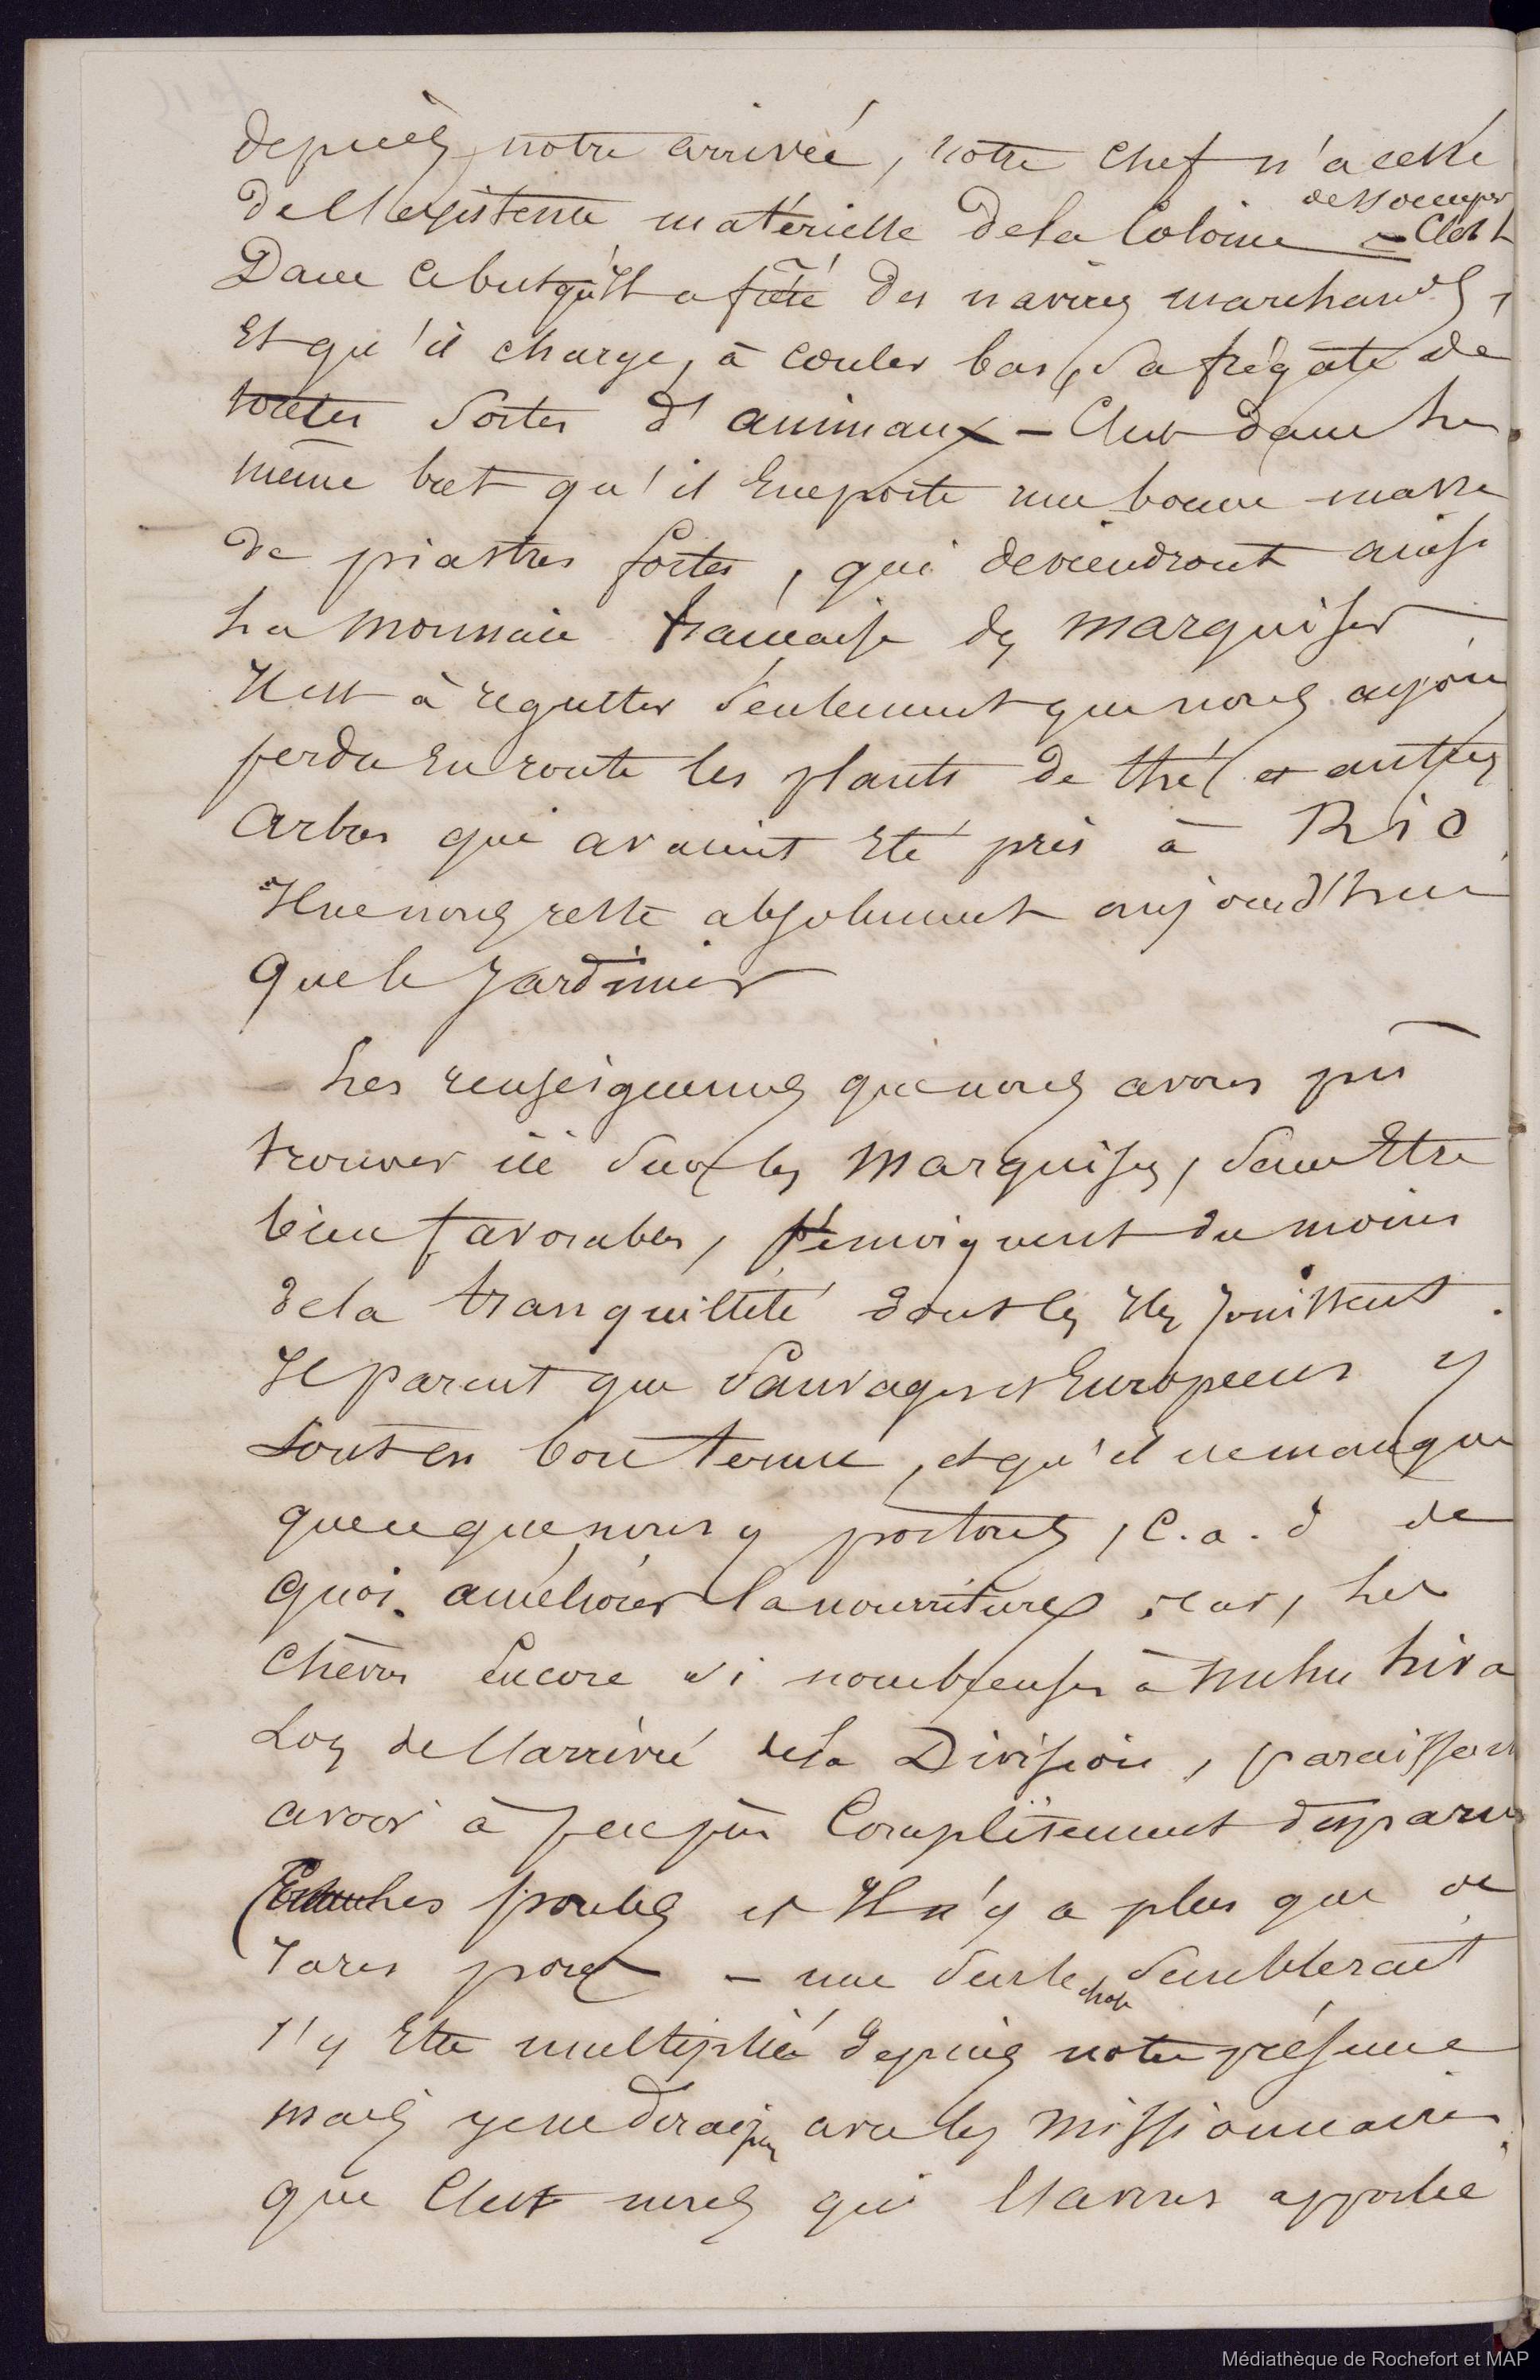 depuis notre arrivée, notre chef n'a cessé
de s'occuper
de l'existence matérielle de la Colonie - C'est
Dans ce but qu'il a frété des navires marchands,
Et qu'il charge, à couler bas, sa frégate de
toutes sortes d'animaux - C'est dans le
même but qu'il Emporte une bonne masse
de piastres fortes, qui deviendront ainsi
La monnaie française des marquises
Il est à regretter seulement que nous ayons
perdu En route les plants de thé et autres
Arbres qui avaient Eté pris à Rio
Il ne nous reste absolument aujourd'hui
Que le Jardinier
Les renseignemens que nous avons pu
trouver ici sur les Marquises, sans Etre
bien favorables, témoignent du moins
de la tranquillité dont les Iles Jouissent.
Il parait que Sauvages et Européens y
Sont en bon terme, et qu'il ne manque
que ce que nous y portons, c.a.d de
Quoi améliorer la nourriture, car, les
Chèvres Encore si nombreuses à nuhu hiva
Lors de l'arrivée de la Division, paraissent
avoir à peu près Complètement disparu
les poules et Il n'y a plus que de
rares porcs - une seule chose semblerait
s'y Etre multiplié depuis notre présence
mais je ne dirai pas avec les missionnaires
que C'est nous qui l'avons apporté